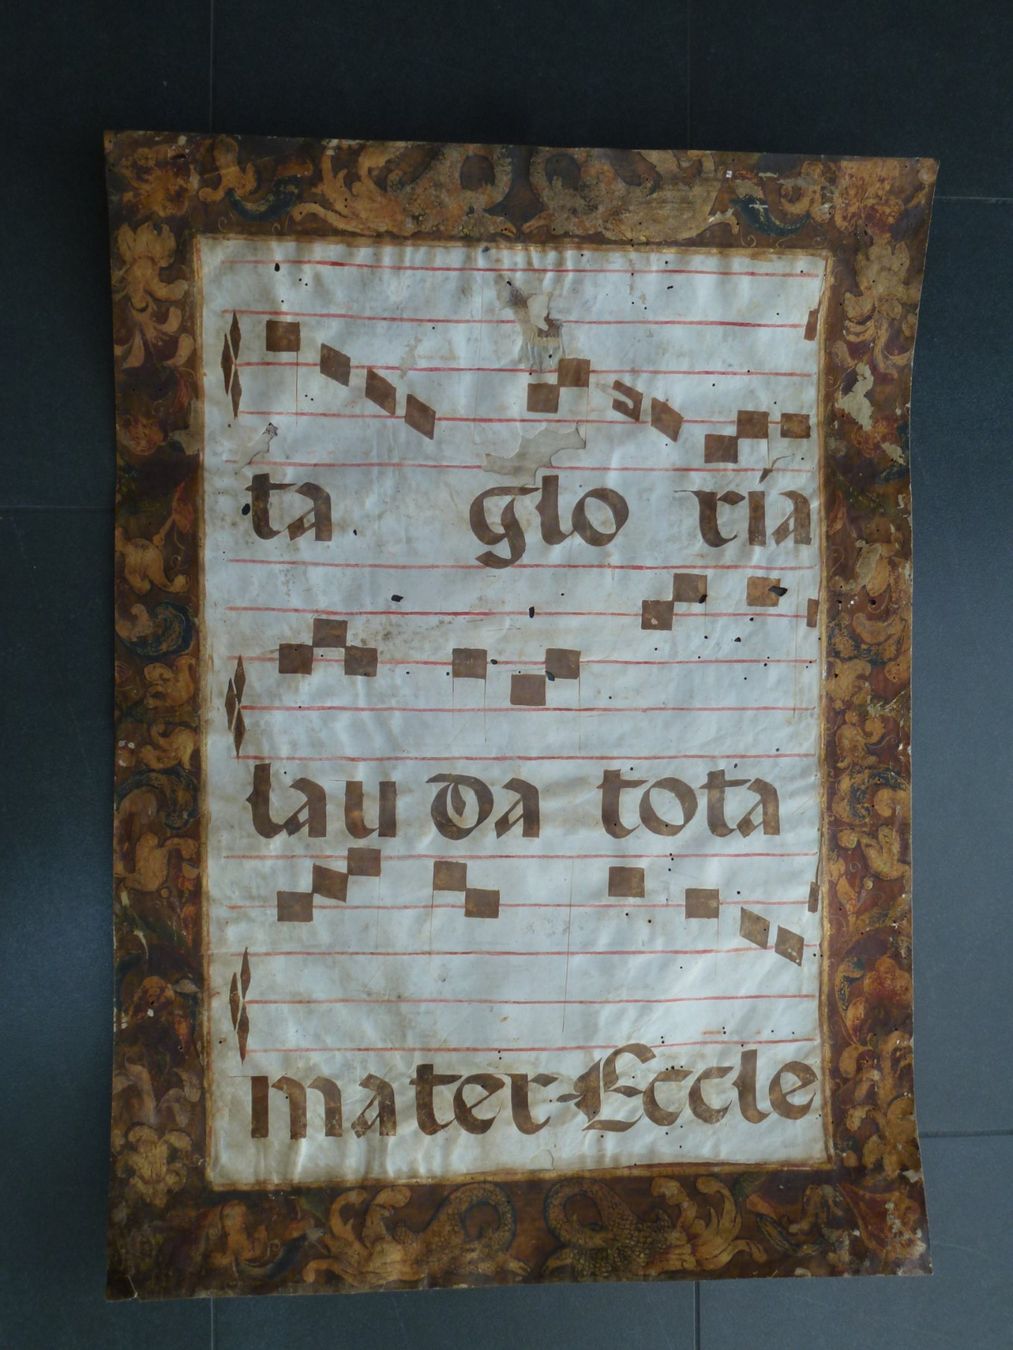 ta glo ría
lau da tota
mater Eccle